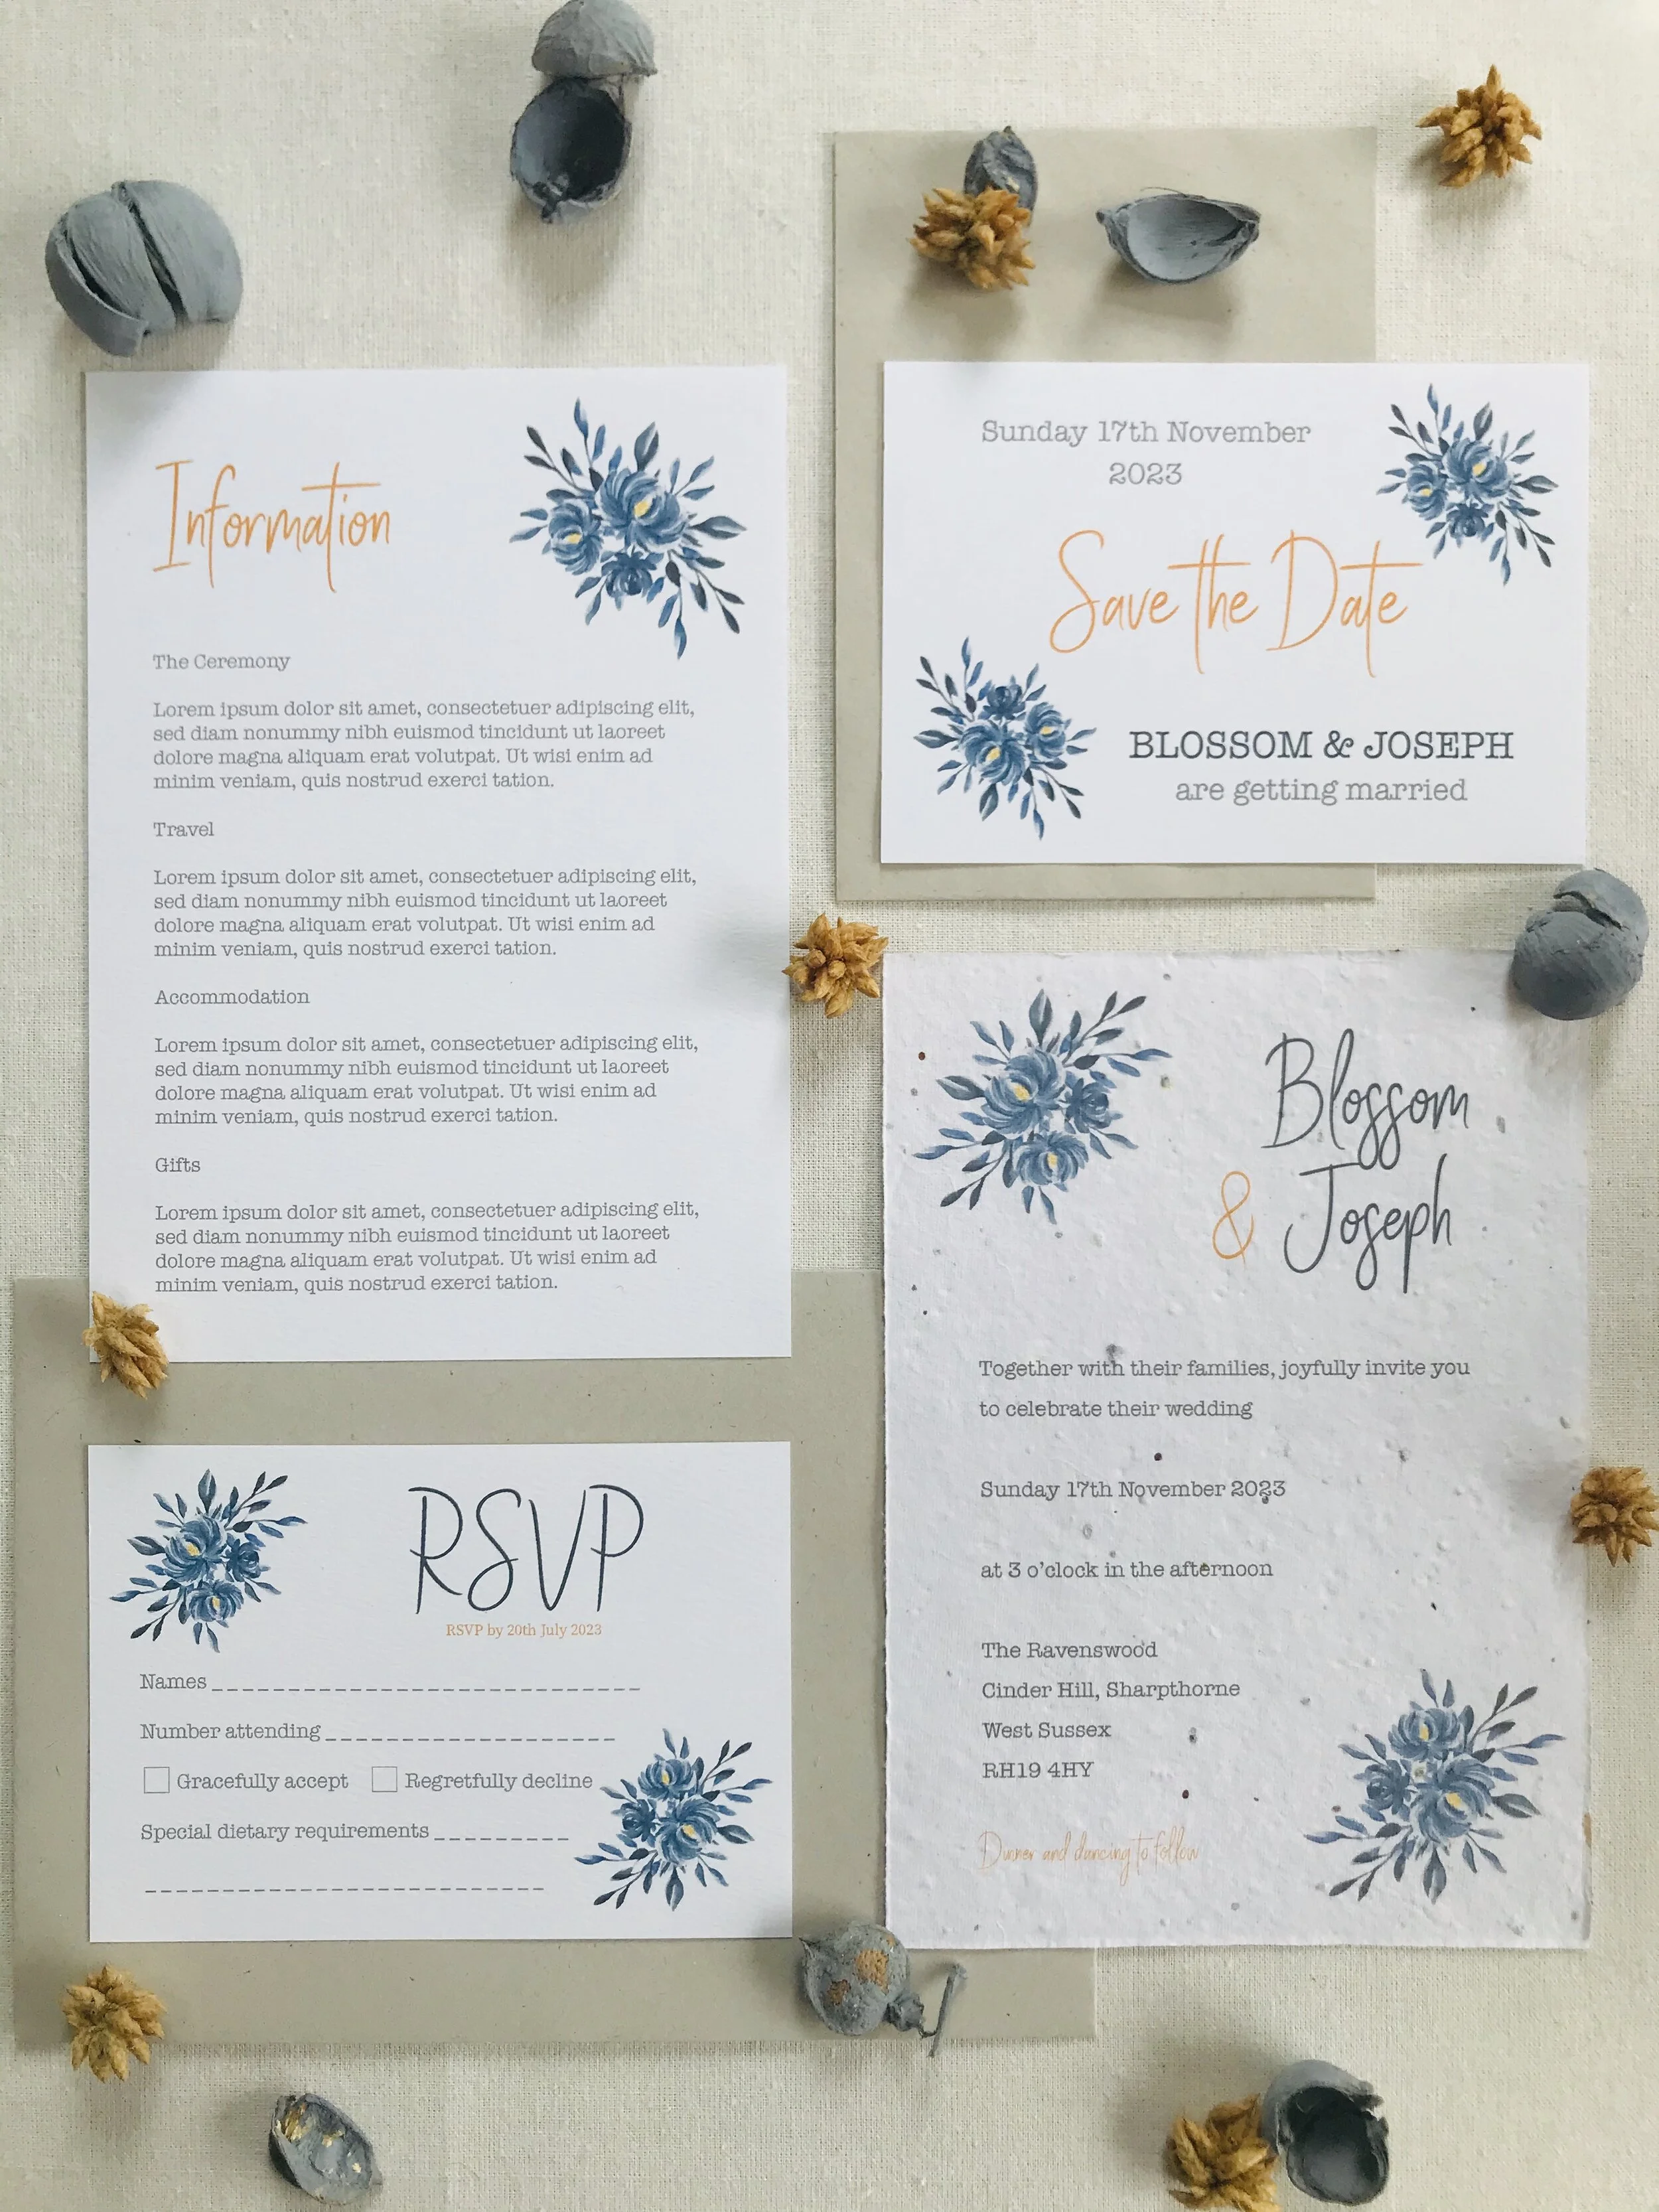 Information
The Ceremony
Lorem ipsum dolor sit amet, consectetuer adipiscing elit,
sed diam nonummy nibh euismod tincidunt ut laoreet
dolore magna aliquam erat volutpat. Ut wisi enim ad
minim veniam, quis nostrud exerci tation.
Travel
Lorem ipsum dolor sit amet, consectetuer adipiscing elit,
sed diam nonummy nibh euismod tincidunt ut laoreet
dolore magna aliquam erat volutpat. Ut wisi enim ad
minim veniam, quis nostrud exerci tation.
Accommodation
Lorem ipsum dolor sit amet, consectetuer adipiscing elit,
sed diam nonummy nibh euismod tincidunt ut laoreet
dolore magna aliquam erat volutpat. Ut wisi enim ad
minim veniam, quis nostrud exerci tation.
Gifts
Lorem ipsum dolor sit amet, consectetuer adipiscing elit,
sed diam nonummy nibh euismod tincidunt ut laoreet
dolore magna aliquam erat volutpat. Ut wisi enim ad
minim veniam, quis nostrud exerci tation.
Sunday 17th November
2023
Save the Date
BLOSSOM & JOSEPH
are getting married
RSVP
RSVP by 20th July 2023
Names
Number attending
Gracefully accept Regretfully decline
Special dietary requirements
Blossom
& Joseph
Together with their families, joyfully invite you
to celebrate their wedding
Sunday 17th November 2023
at 3 o'clock in the afternoon
The Ravenswood
Cinder Hill, Sharpthorne
West Sussex
RH19 4HY
Dinner and dancing to follow